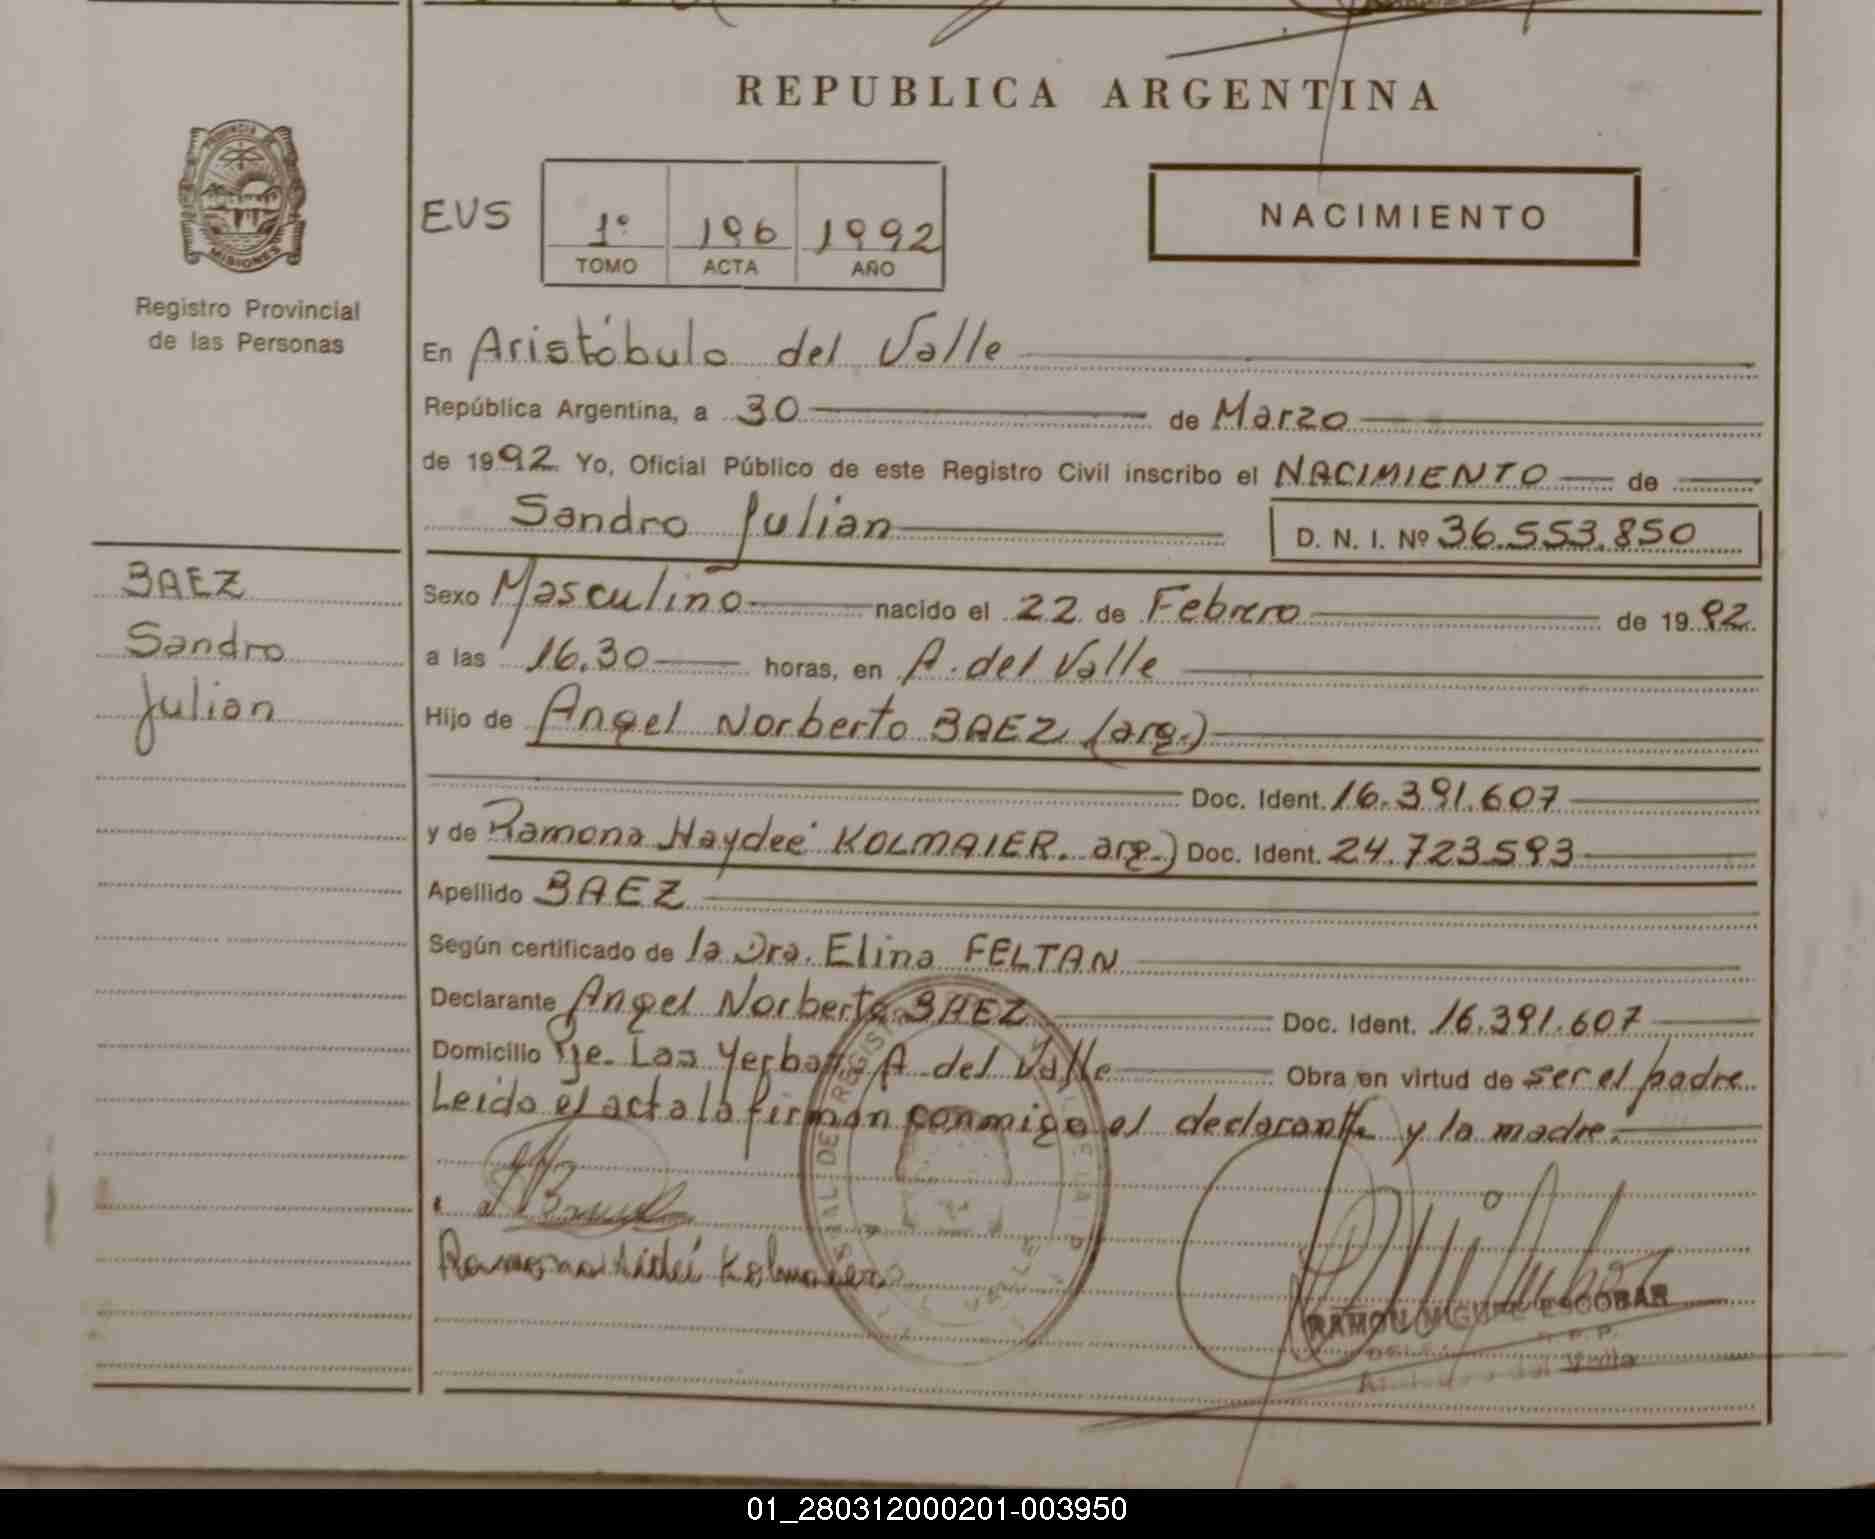 REPUBLICA ARGENTINA
PROVINCIA
MISIONES
Registro Provincial
de las Personas
EVS
1º 196 1992
TOMO ACTA AÑO
NACIMIENTO
En Aristóbulo del Valle
República Argentina, a 30 de Marzo
de 1992. Yo, Oficial Público de este Registro Civil inscribo el NACIMIENTO de
Sandro Julian D. N. I. Nº 36.553.850
BAEZ
Sandro
Julian
Sexo Masculino nacido el 22 de Febrero de 1992.
a las 16.30 horas, en A. del Valle
Hijo de Angel Norberto BAEZ (arg.)
Doc. Ident. 16.391.607
y de Ramona Haydeé KOLMAIER. arg.) Doc. Ident. 24.723.593
Apellido BAEZ
Según certificado de la Dra. Elina FELTAN
Declarante Angel Norberto BAEZ Doc. Ident. 16.391.607
Domicilio Pje. Las Yerbas A. del Valle Obra en virtud de ser el padre
Leida el acta la firman conmigo el declarante y la madre.
Ramona Kolmaier
RAMON MIGUEL ESCOBAR
01_280312000201-003950